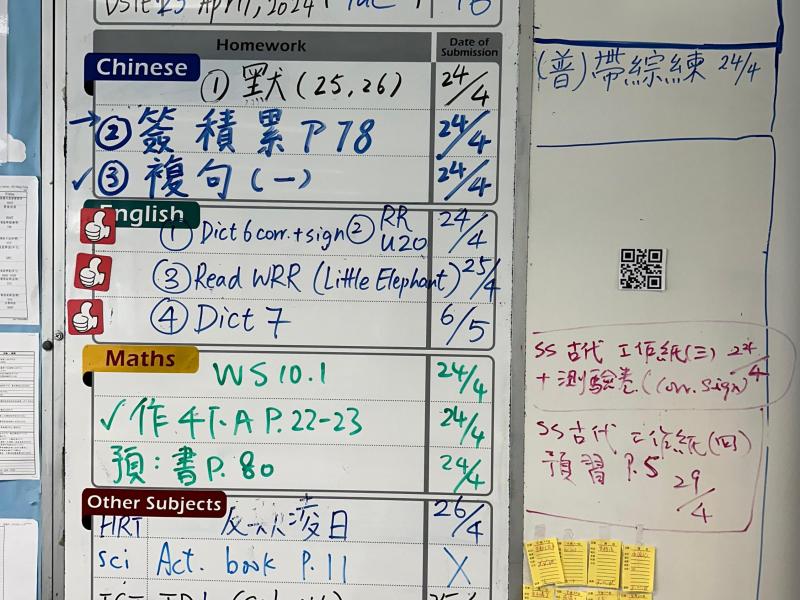 Date 23 April, 2024 Tue
Homework
Date of Submission
Chinese
① 默 (25, 26) 24/4
→ ② 簽 積累 P 78 24/4
✓ ③ 複句 (一) 24/4
English
① Dict 6 corr. + sign ② RR U20 24/4
③ Read WRR (Little Elephant) 25/4
④ Dict 7 6/5
Maths
WS 10.1 24/4
✓ 作 4下A P. 22-23 24/4
預: 書 P. 80 24/4
Other Subjects
HRT 反欺凌日 26/4
Sci Act. book P. 11 X
(普) 帶綜練 24/4
SS 古代 工作紙(三) 24/4
+ 測驗卷 (Corr. Sign)
SS 古代 工作紙(四)
預習 P. 5 29/4